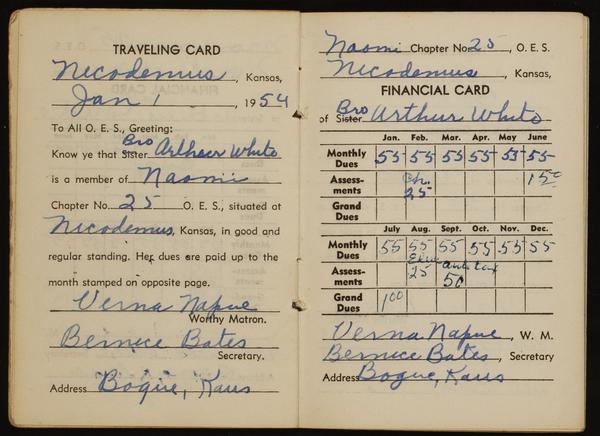 TRAVELING CARD
Nicodemus, Kansas,
Jan 1, 1954
To All O. E. S., Greeting:
Know ye that Sister Bro Arthur White
is a member of Naomi
Chapter No. 25 O. E. S., situated at
Nicodemus, Kansas, in good and
regular standing. Her dues are paid up to the
month stamped on opposite page.
Verna Napue
Worthy Matron.
Bernice Bates
Secretary.
Address Bogue, Kans
Naomi Chapter No. 25, O. E. S.
Nicodemus, Kansas,
FINANCIAL CARD
of Sister Bro Arthur White
Jan. Feb. Mar. Apr. May June
Monthly Dues 55 55 55 55 55 55
Assessments 25 150
Grand Dues
July Aug. Sept. Oct. Nov. Dec.
Monthly Dues 55 55 55 55 55 55
Assessments 25 50
Grand Dues 100
Verna Napue, W. M.
Bernice Bates, Secretary
Address Bogue, Kans